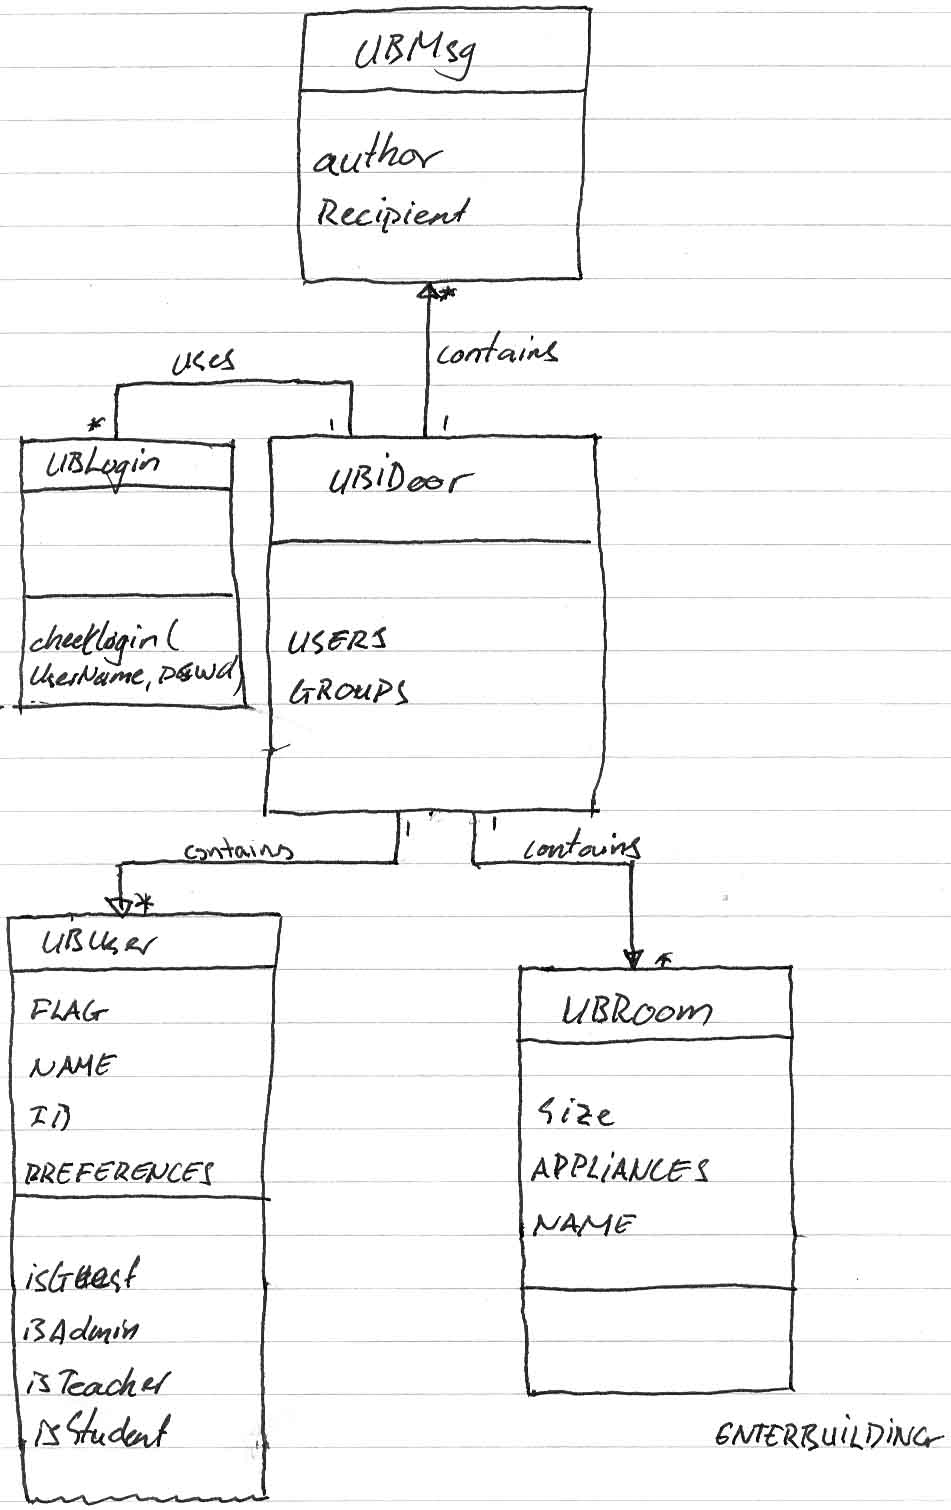 UBMsg
author
Recipient
*
contains
uses
*
1
1
UBLogin
checklogin(
UserName, PsWd)
UBiDoor
USERS
GROUPS
1
1
contains
contains
*
*
UBUser
FLAG
NAME
ID
PREFERENCES
isGuest
isAdmin
isTeacher
isStudent
UBRoom
Size
APPLIANCES
NAME
ENTERBUILDING